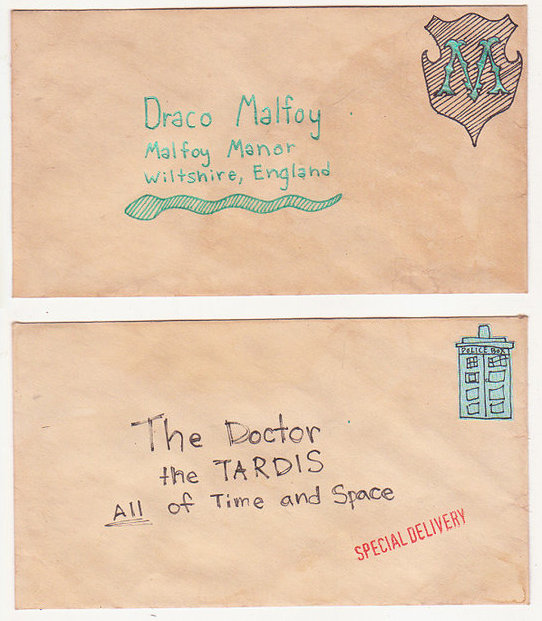 M
Draco Malfoy
Malfoy Manor
Wiltshire, England
POLICE BOX
The Doctor
the TARDIS
All of Time and Space
SPECIAL DELIVERY